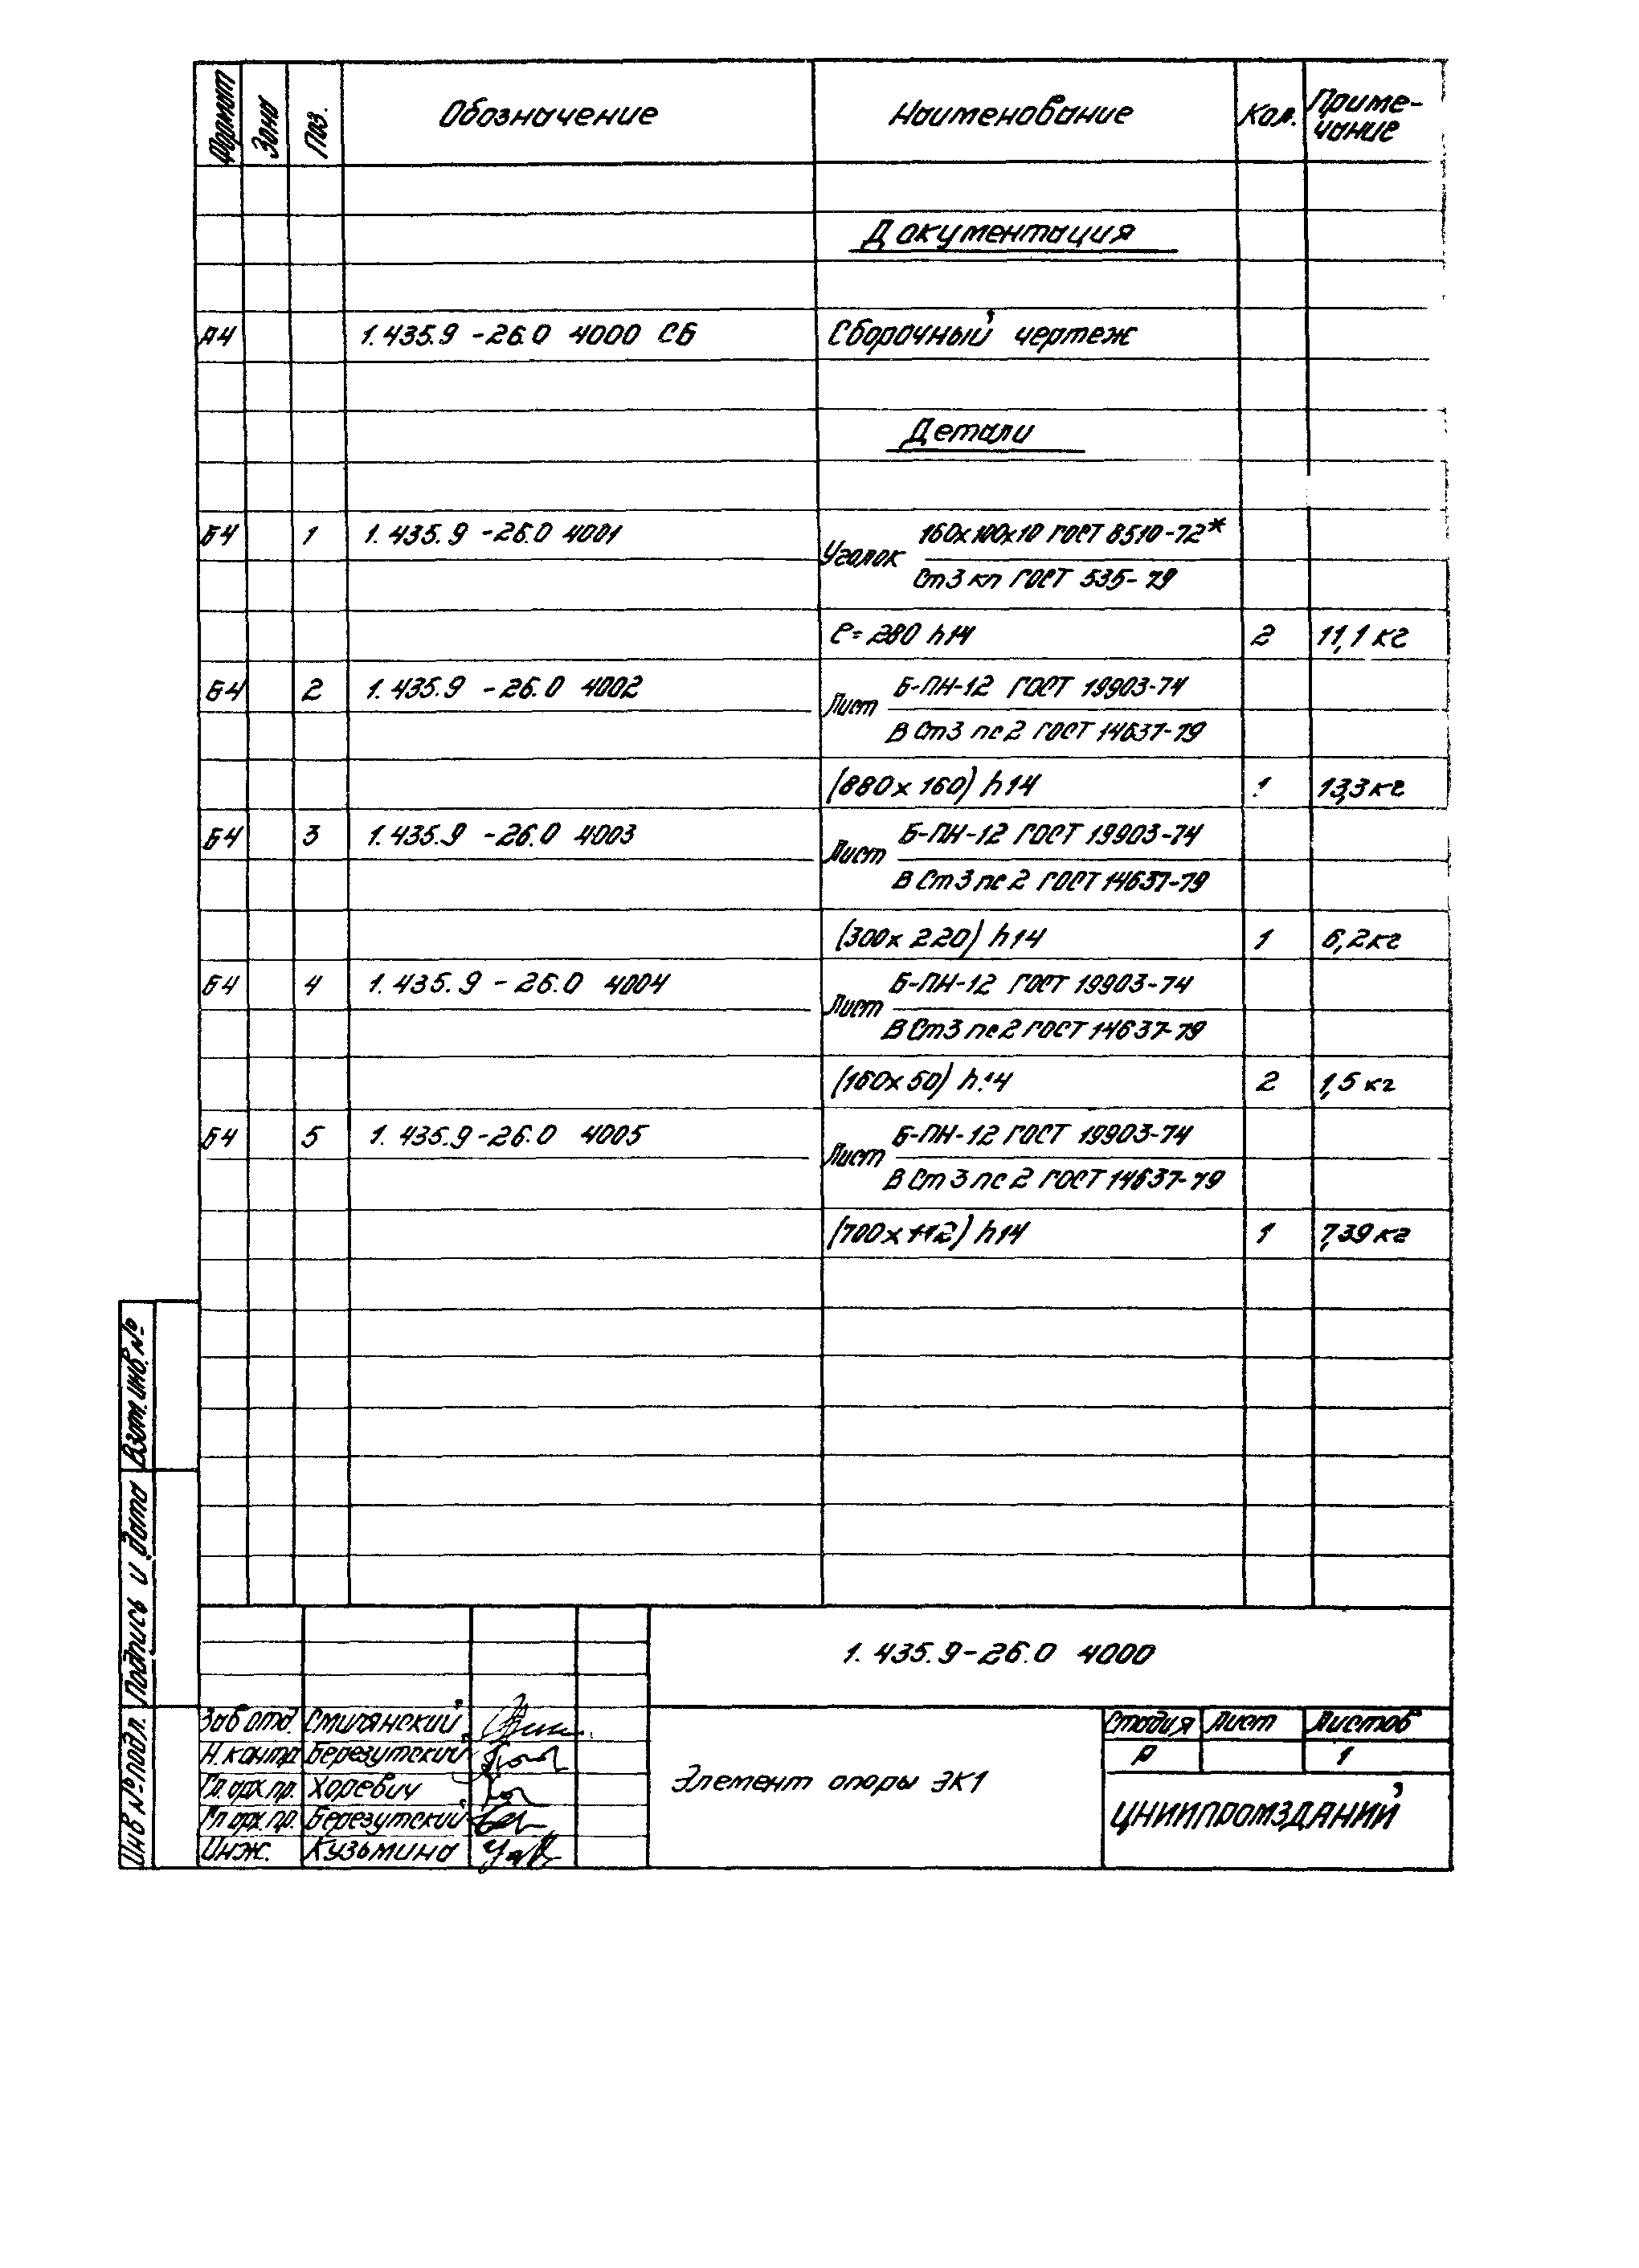 Формат Зона Поз. Обозначение Наименование Кол. Приме-
чание
Документация
А4 1.435.9 -26.0 4000 СБ Сборочный чертеж
Детали
Б4 1 1.435.9 -26.0 4001 Уголок 160х100х10 ГОСТ 8510-72*
Ст3 кп ГОСТ 535-79
ℓ=280 h14 2 11,1 кг
Б4 2 1.435.9 -26.0 4002 Лист Б-ПН-12 ГОСТ 19903-74
В Ст3 пс2 ГОСТ 14637-79
(880х160) h14 1 13,3 кг
Б4 3 1.435.9 -26.0 4003 Лист Б-ПН-12 ГОСТ 19903-74
В Ст3 пс2 ГОСТ 14637-79
(300х220) h14 1 6,2 кг
Б4 4 1.435.9 -26.0 4004 Лист Б-ПН-12 ГОСТ 19903-74
В Ст3 пс2 ГОСТ 14637-79
(160х50) h14 2 1,5 кг
Б4 5 1.435.9-26.0 4005 Лист Б-ПН-12 ГОСТ 19903-74
В Ст3 пс2 ГОСТ 14637-79
(700х112) h14 1 7,39 кг
Взам. инв. №
Подпись и дата
Инв № подл.
1.435.9-26.0 4000
Зав отд. Смилянский
Н. контр Березутский
Гл. арх. пр. Хоревич
Гл арх. пр. Березутский
Инж. Кузьмина
Элемент опоры ЭК1
Стадия Лист Листов
Р 1
ЦНИИПРОМЗДАНИЙ